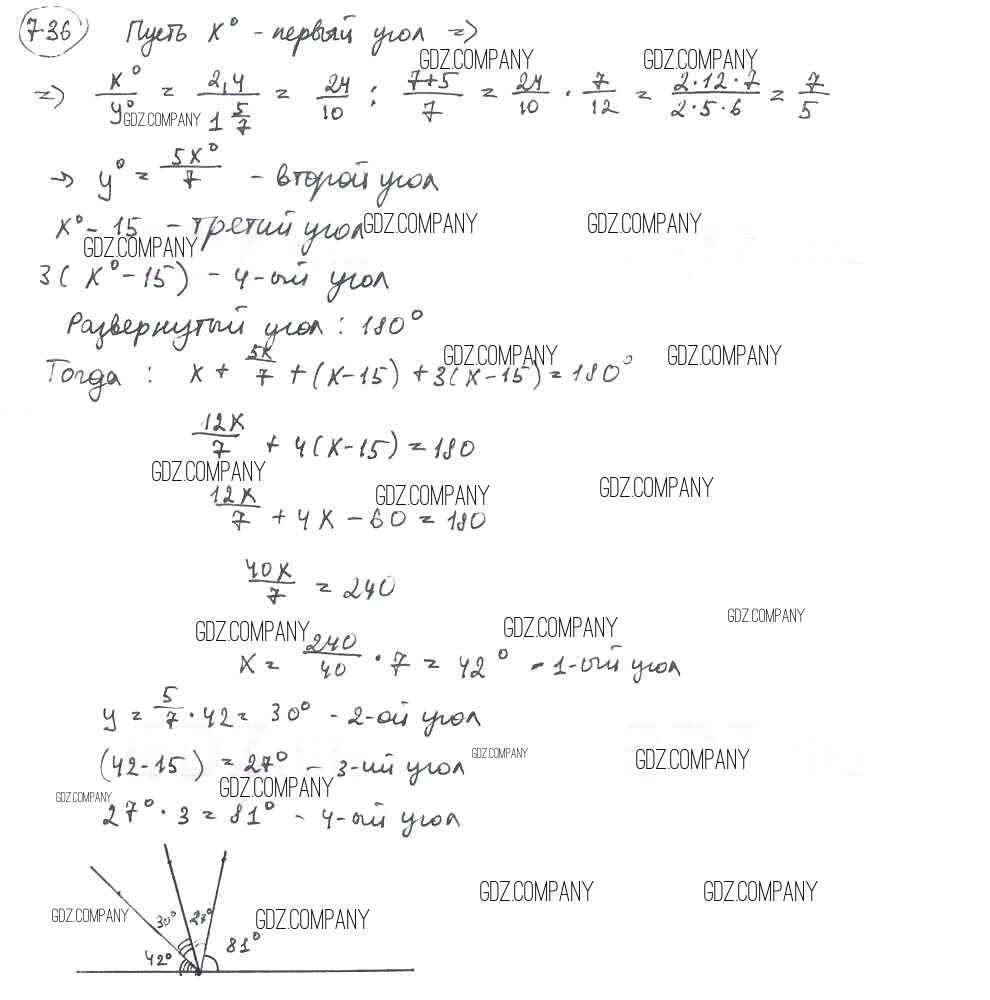 736 Пусть x° - первый угол =>
GDZ.COMPANY GDZ.COMPANY
=> x°/y° = 2,4/1 5/7 = 24/10 : 7+5/7 = 24/10 · 7/12 = 2·12·7/2·5·6 = 7/5
GDZ.COMPANY
-> y° = 5x°/7 - второй угол
x° - 15 - третий угол
GDZ.COMPANY GDZ.COMPANY
GDZ.COMPANY
3(x° - 15) - 4-ый угол
Развернутый угол : 180°
GDZ.COMPANY GDZ.COMPANY
Тогда : x + 5x/7 + (x-15) + 3(x-15) = 180°
12x/7 + 4(x-15) = 180
GDZ.COMPANY GDZ.COMPANY GDZ.COMPANY
12x/7 + 4x - 60 = 180
40x/7 = 240
GDZ.COMPANY GDZ.COMPANY GDZ.COMPANY
x = 240/40 · 7 = 42° - 1-ый угол
y = 5/7 · 42 = 30° - 2-ой угол
GDZ.COMPANY GDZ.COMPANY
(42-15) = 27° - 3-ий угол
GDZ.COMPANY
GDZ.COMPANY
27° · 3 = 81° - 4-ый угол
GDZ.COMPANY GDZ.COMPANY
GDZ.COMPANY 30° 27° GDZ.COMPANY
42° 81°